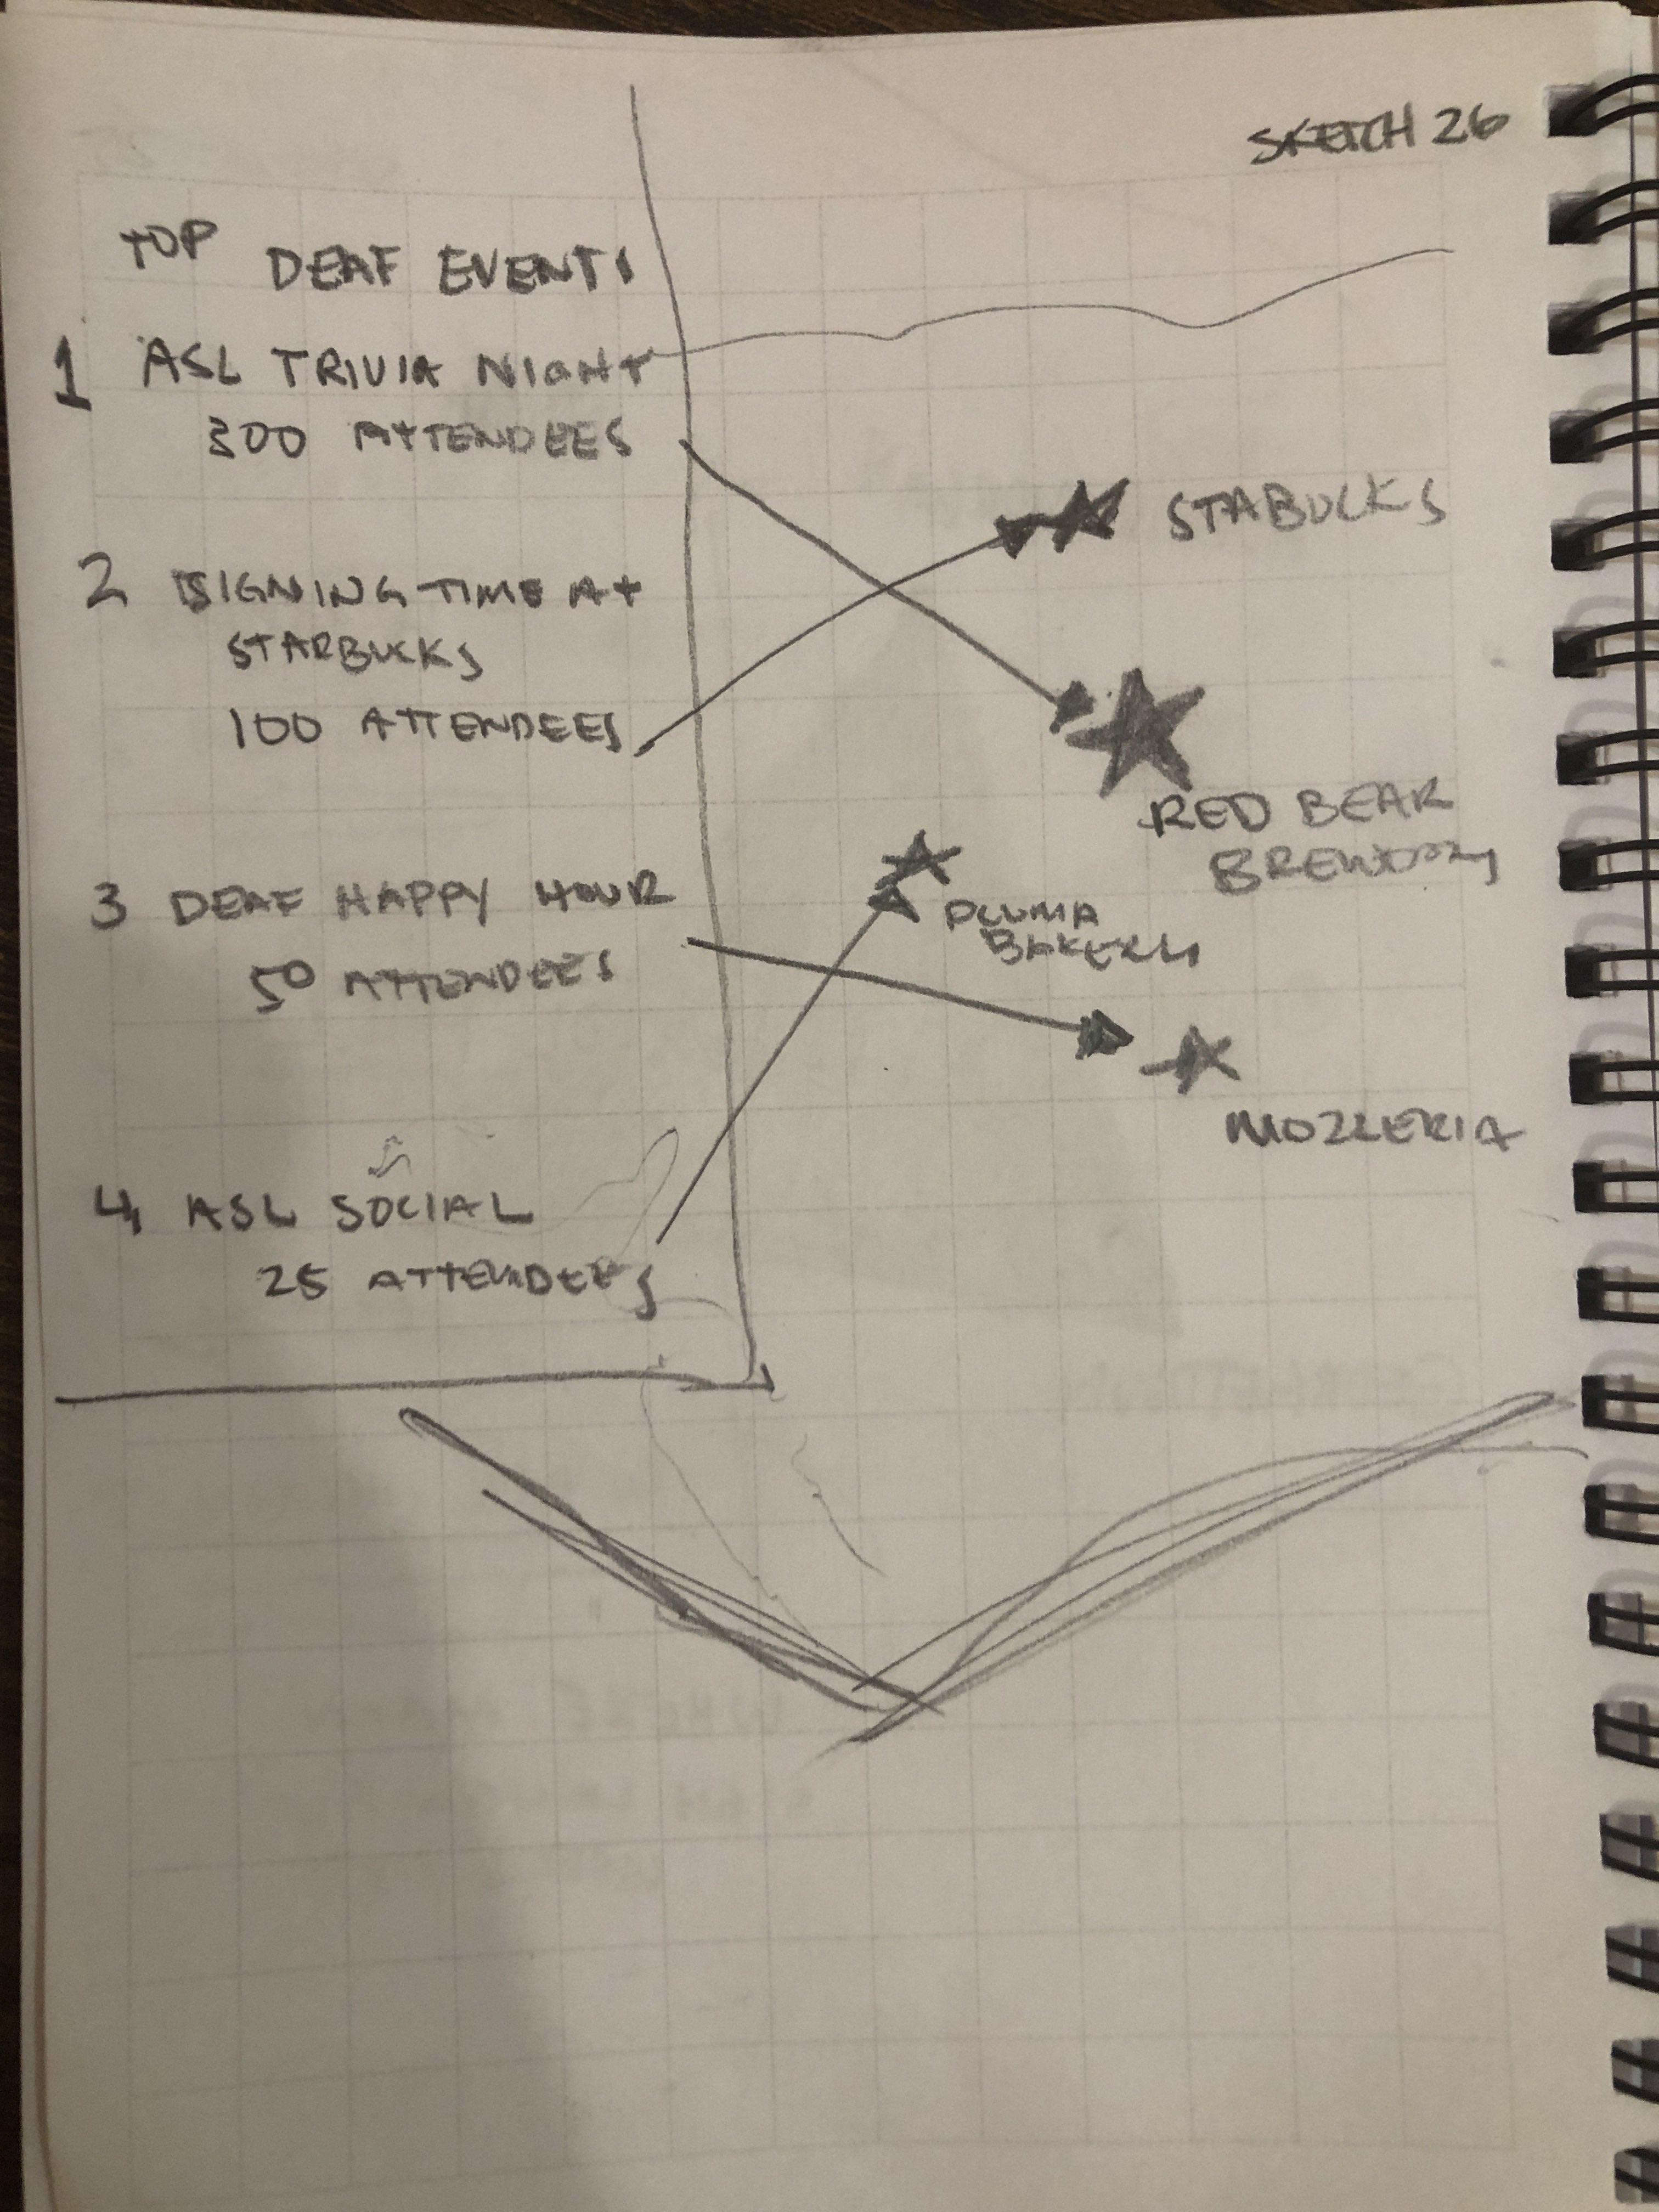 SKETCH 26
TOP DEAF EVENTS
1 ASL TRIVIA NIGHT
300 ATTENDEES
2 SIGNING TIME AT
STARBUCKS
100 ATTENDEES
3 DEAF HAPPY HOUR
50 ATTENDEES
4 ASL SOCIAL
25 ATTENDEES
STABUCKS
RED BEAR
BREWERY
PLUMA
BAKERY
MOZZERIA